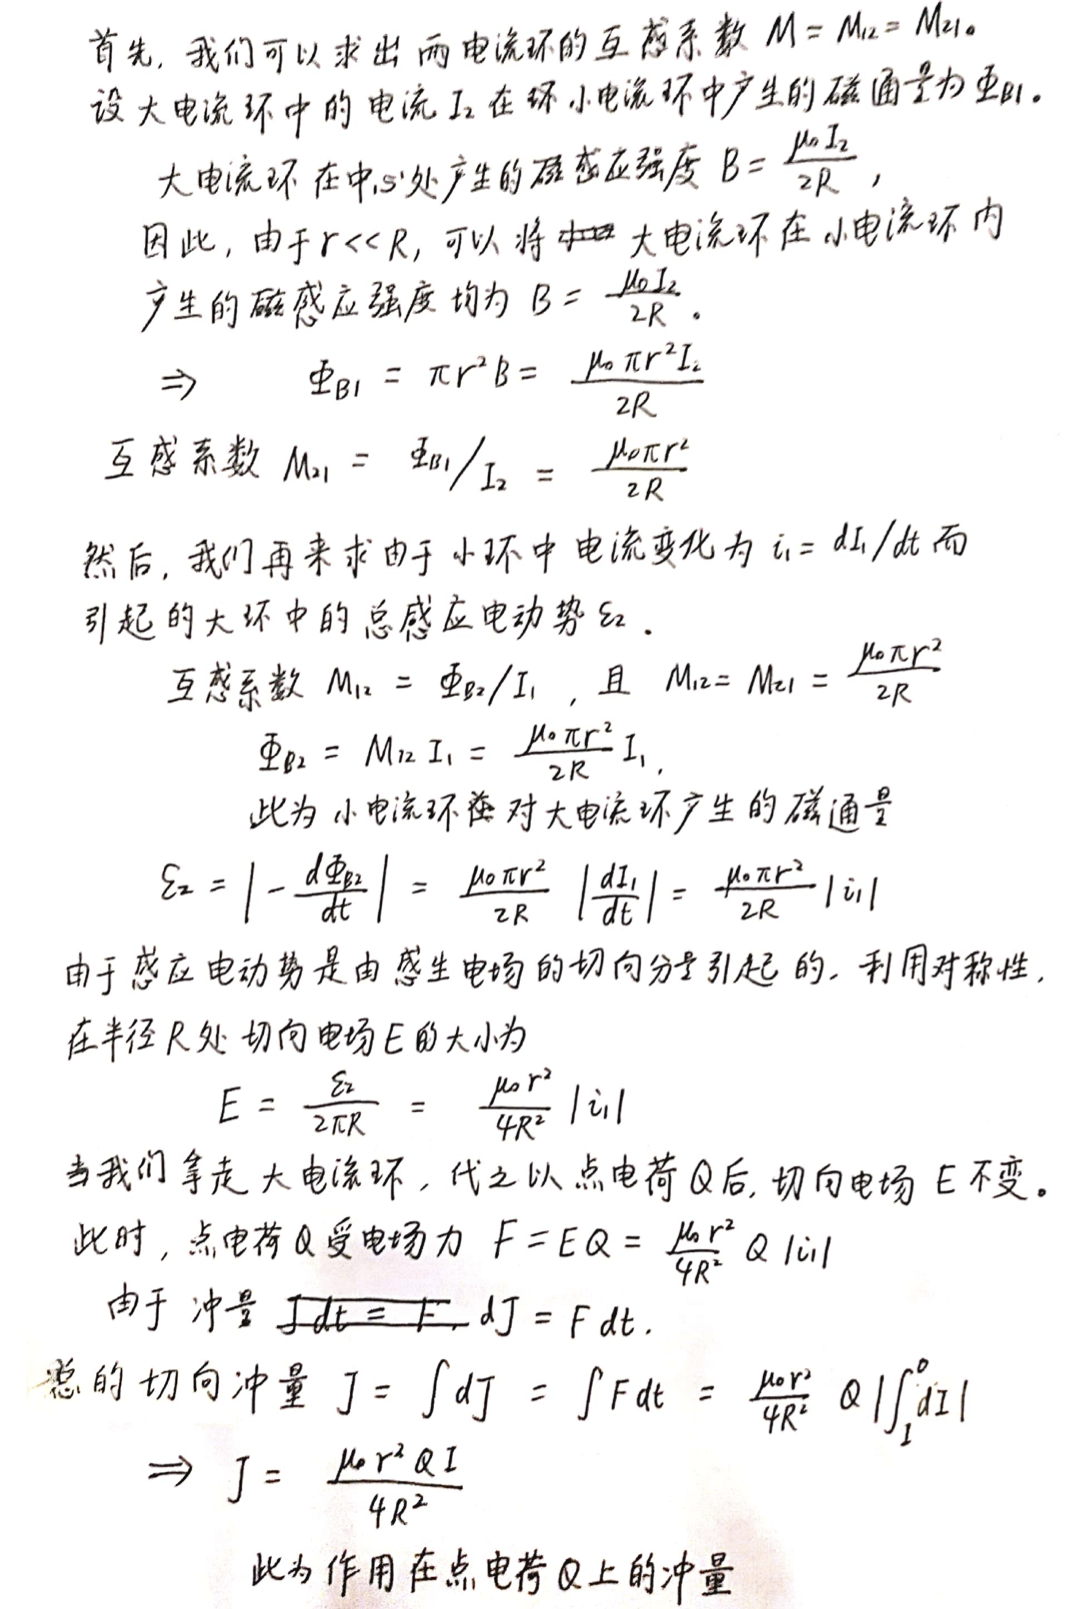 首先，我们可以求出两电流环的互感系数 M = M₁₂ = M₂₁。
设大电流环中的电流 I₂ 在环小电流环中产生的磁通量为 Φ_B1.
大电流环在中心处产生的磁感应强度 B = μ₀I₂/2R,
因此，由于 r<<R, 可以将 大电流环在小电流环内
产生的磁感应强度均为 B = μ₀I₂/2R.
⇒ Φ_B1 = πr²B = μ₀πr²I₂/2R
互感系数 M₂₁ = Φ_B1/I₂ = μ₀πr²/2R
然后，我们再来求由于小环中电流变化为 i₁ = dI₁/dt 而
引起的大环中的总感应电动势 ε₂.
互感系数 M₁₂ = Φ_B2/I₁, 且 M₁₂ = M₂₁ = μ₀πr²/2R
Φ_B2 = M₁₂ I₁ = μ₀πr²/2R I₁,
此为小电流环 对大电流环产生的磁通量
ε₂ = |-dΦ_B2/dt| = μ₀πr²/2R |dI₁/dt| = μ₀πr²/2R |i₁|
由于感应电动势是由感生电场的切向分量引起的. 利用对称性,
在半径R处切向电场E的大小为
E = ε₂/2πR = μ₀r²/4R² |i₁|
当我们拿走大电流环，代之以点电荷Q后, 切向电场E不变。
此时，点电荷Q受电场力 F = EQ = μ₀r²/4R² Q |i₁|
由于冲量 J dt = F. dJ = F dt.
总的切向冲量 J = ∫dJ = ∫F dt = μ₀r²/4R² Q |∫_I^0 dI|
⇒ J = μ₀r²QI/4R²
此为作用在点电荷Q上的冲量